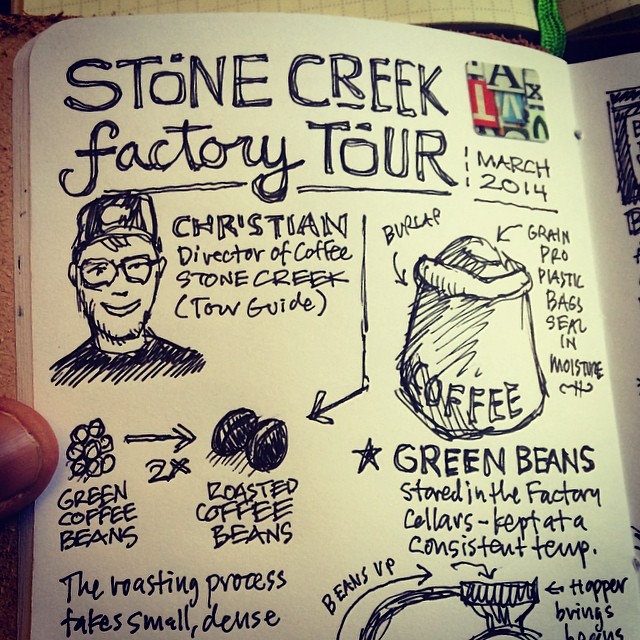 STONE CREEK
factory TOUR
MARCH
2014
CHRISTIAN
Director of Coffee
STONE CREEK
(Tour Guide)
BURLAP
GRAIN
PRO
PLASTIC
BAGS
SEAL
IN
MOISTURE
COFFEE
2X
GREEN
COFFEE
BEANS
ROASTED
COFFEE
BEANS
★ GREEN BEANS
Stored in the Factory
Cellars - kept at a
Consistent temp.
The roasting process
takes small, dense
BEANS UP
Hopper
brings
beans